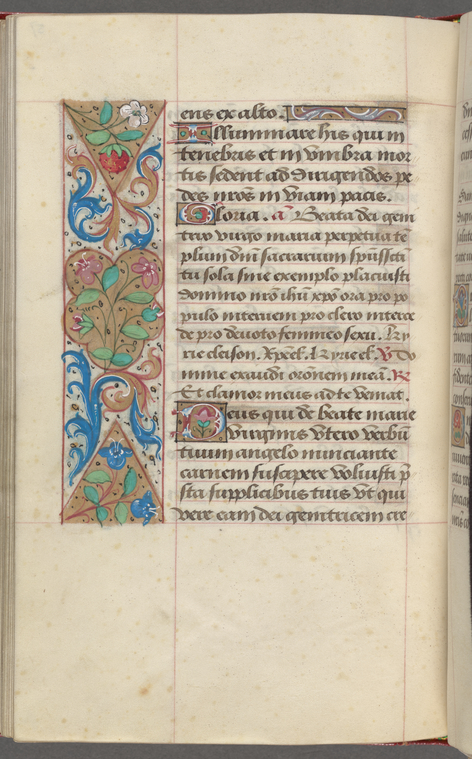 ens ex alto.
Illuminare his qui in
tenebris et in vmbra mor
tis sedent ad dirigendos pe
des nr̄os in viam pacis.
Gloria. a͞ Beata dei gem
trix virgo maria perpetua tē
plum dn̄i sacrarium sp̄ussc̄ti
tu sola sine exemplo placuisti
domino nr̄o ih̄u xp̄o ora pro po
pulo interueni pro clero interce
de pro deuoto femineo sexu. Ky
rie eleison. Xp̄eel̄. Kyrieel̄. V Do
mine exaudi or̄onem meā. R
Et clamor meus ad te veniat.
Deus qui de beate marie
virginis vtero verbū
tuum angelo nunciante
carnem suscipere voluisti p̄
sta supplicibus tuis vt qui
vere eam dei genitricem cre